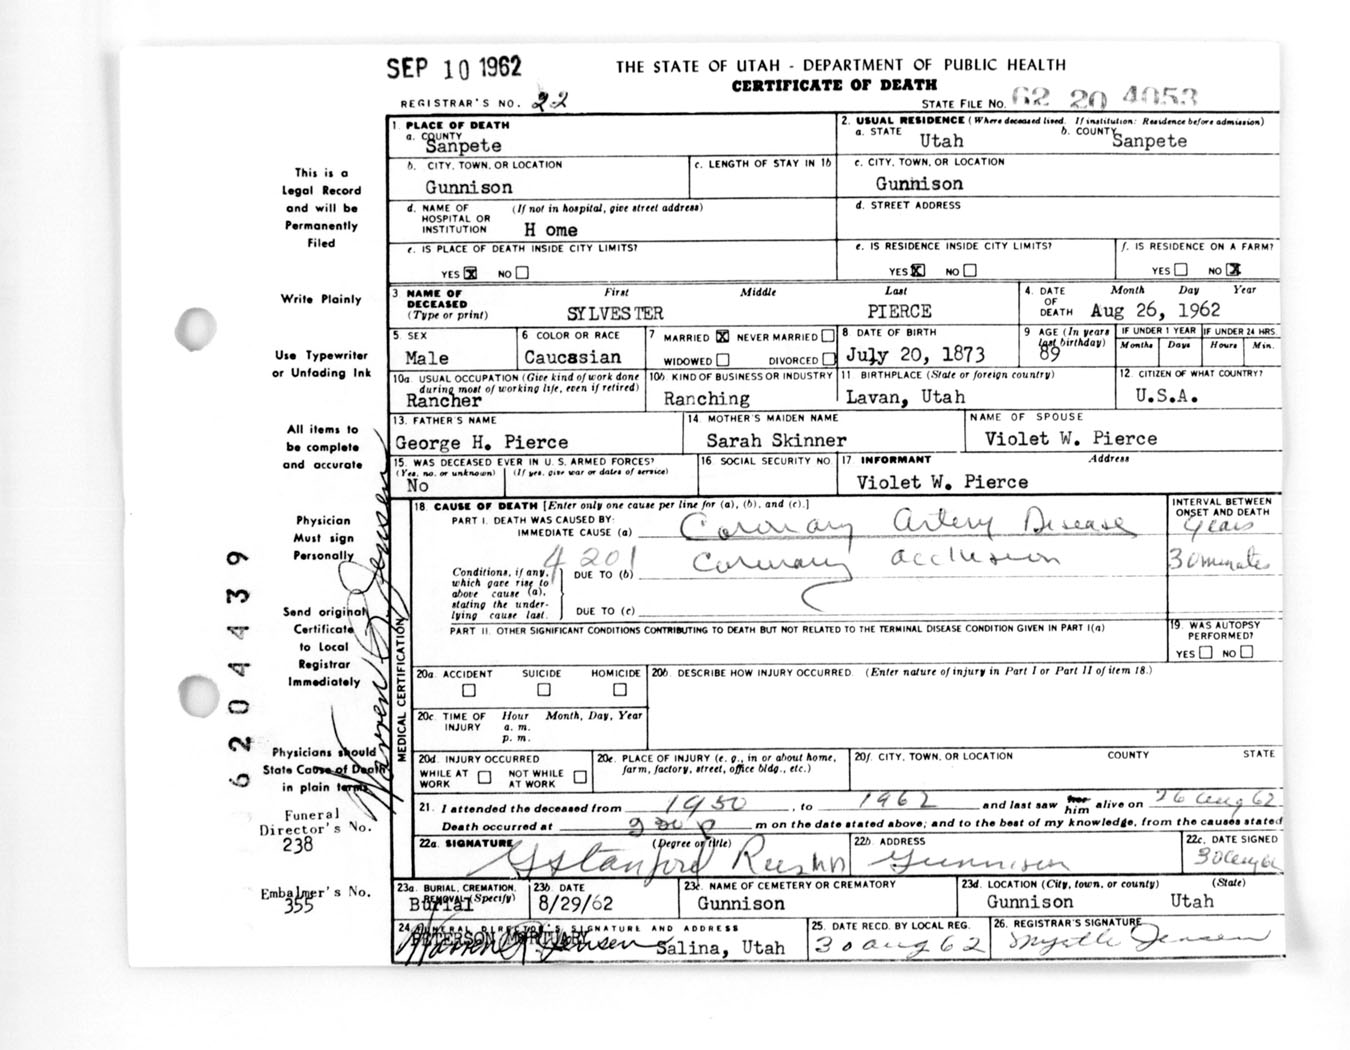 SEP 10 1962
THE STATE OF UTAH - DEPARTMENT OF PUBLIC HEALTH
CERTIFICATE OF DEATH
REGISTRAR'S NO. 22
STATE FILE NO. 62 20 4053
1. PLACE OF DEATH
a. COUNTY
Sanpete
2. USUAL RESIDENCE (Where deceased lived. If institution: Residence before admission)
a. STATE Utah b. COUNTY Sanpete
b. CITY, TOWN, OR LOCATION
Gunnison
c. LENGTH OF STAY IN 1b
c. CITY, TOWN, OR LOCATION
Gunnison
d. NAME OF HOSPITAL OR INSTITUTION (If not in hospital, give street address)
H ome
d. STREET ADDRESS
e. IS PLACE OF DEATH INSIDE CITY LIMITS?
YES X NO
e. IS RESIDENCE INSIDE CITY LIMITS?
YES X NO
f. IS RESIDENCE ON A FARM?
YES NO X
3. NAME OF DECEASED (Type or print)
First Middle Last
SYLVESTER PIERCE
4. DATE OF DEATH Month Day Year
Aug 26, 1962
5. SEX
Male
6 COLOR OR RACE
Caucasian
7 MARRIED X NEVER MARRIED
WIDOWED DIVORCED
8 DATE OF BIRTH
July 20, 1873
9 AGE (In years last birthday)
89
IF UNDER 1 YEAR
Months Days
IF UNDER 24 HRS.
Hours Min.
10a. USUAL OCCUPATION (Give kind of work done during most of working life, even if retired)
Rancher
10b. KIND OF BUSINESS OR INDUSTRY
Ranching
11 BIRTHPLACE (State or foreign country)
Lavan, Utah
12 CITIZEN OF WHAT COUNTRY?
U.S.A.
13. FATHER'S NAME
George H. Pierce
14. MOTHER'S MAIDEN NAME
Sarah Skinner
NAME OF SPOUSE
Violet W. Pierce
15. WAS DECEASED EVER IN U.S. ARMED FORCES?
(Yes, no, or unknown) (If yes, give war or dates of service)
No
16 SOCIAL SECURITY NO.
17 INFORMANT Address
Violet W. Pierce
MEDICAL CERTIFICATION
18. CAUSE OF DEATH [Enter only one cause per line for (a), (b), and (c).]
INTERVAL BETWEEN ONSET AND DEATH
PART I. DEATH WAS CAUSED BY:
IMMEDIATE CAUSE (a) Coronary Artery Disease years
4201
Conditions, if any, which gave rise to above cause (a), stating the underlying cause last.
DUE TO (b) Coronary occlusion 30 minutes
DUE TO (c)
PART II. OTHER SIGNIFICANT CONDITIONS CONTRIBUTING TO DEATH BUT NOT RELATED TO THE TERMINAL DISEASE CONDITION GIVEN IN PART I(a)
19. WAS AUTOPSY PERFORMED?
YES NO
20a. ACCIDENT SUICIDE HOMICIDE
20b. DESCRIBE HOW INJURY OCCURRED. (Enter nature of injury in Part I or Part II of item 18.)
20c. TIME OF INJURY Hour Month, Day, Year
a. m.
p. m.
20d. INJURY OCCURRED
WHILE AT WORK NOT WHILE AT WORK
20e. PLACE OF INJURY (e. g., in or about home, farm, factory, street, office bldg., etc.)
20f. CITY, TOWN, OR LOCATION COUNTY STATE
21. I attended the deceased from 1950, to 1962 and last saw him alive on 26 Aug 62
Death occurred at p m on the date stated above; and to the best of my knowledge, from the causes stated
22a. SIGNATURE (Degree or title)
G Stanford Rees MD
22b. ADDRESS
Gunnison
22c. DATE SIGNED
30 Aug 62
23a. BURIAL, CREMATION, REMOVAL (Specify)
Burial
23b. DATE
8/29/62
23c. NAME OF CEMETERY OR CREMATORY
Gunnison
23d. LOCATION (City, town, or county) (State)
Gunnison Utah
24. FUNERAL DIRECTOR'S SIGNATURE AND ADDRESS
PETERSON MORTUARY Salina, Utah
Warren P. Jensen
25. DATE RECD. BY LOCAL REG.
30 Aug 62
26. REGISTRAR'S SIGNATURE
Myrtle Jensen
This is a
Legal Record
and will be
Permanently
Filed
Write Plainly
Use Typewriter
or Unfading Ink
All items to
be complete
and accurate
Physician
Must sign
Personally
Send original
Certificate
to Local
Registrar
Immediately
Physicians should
State Cause of Death
in plain terms
Funeral
Director's No.
238
Embalmer's No.
355
6204439
Warren P. Jensen